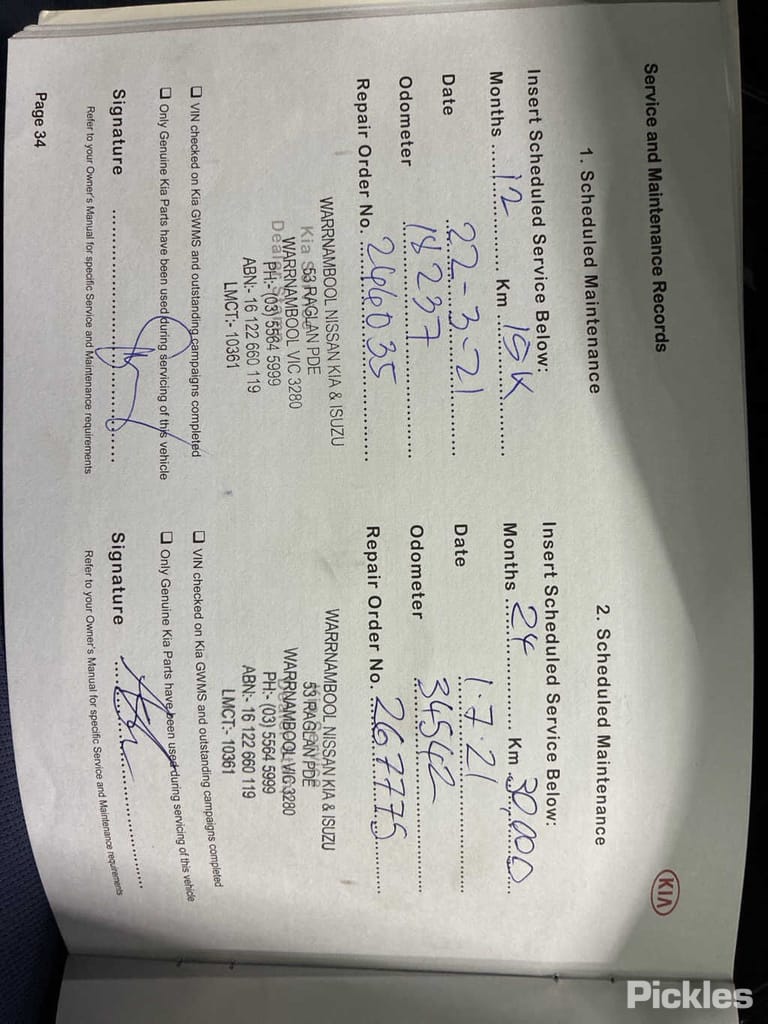 Service and Maintenance Records
KIA
1. Scheduled Maintenance
Insert Scheduled Service Below:
Months ..... 12 ............ Km .. 15K ............
Date ... 22-3-21 ............
Odometer ... 18237 ............
Repair Order No. ... 244035 ............
WARRNAMBOOL NISSAN KIA & ISUZU
53 RAGLAN PDE
WARRNAMBOOL VIC 3280
PH:- (03) 5564 5999
ABN:- 16 122 660 119
LMCT:- 10361
☐ VIN checked on Kia GWMS and outstanding campaigns completed
☐ Only Genuine Kia Parts have been used during servicing of this vehicle
Signature ........................
Refer to your Owner's Manual for specific Service and Maintenance requirements
Page 34
2. Scheduled Maintenance
Insert Scheduled Service Below:
Months .. 24 ............ Km .. 30,000 ....
Date ... 1.7.21 ............
Odometer ... 34542 ............
Repair Order No. ... 267775 ....
WARRNAMBOOL NISSAN KIA & ISUZU
53 RAGLAN PDE
WARRNAMBOOL VIC 3280
PH:- (03) 5564 5999
ABN:- 16 122 660 119
LMCT:- 10361
☐ VIN checked on Kia GWMS and outstanding campaigns completed
☐ Only Genuine Kia Parts have been used during servicing of this vehicle
Signature ........................
Refer to your Owner's Manual for specific Service and Maintenance requirements
Pickles